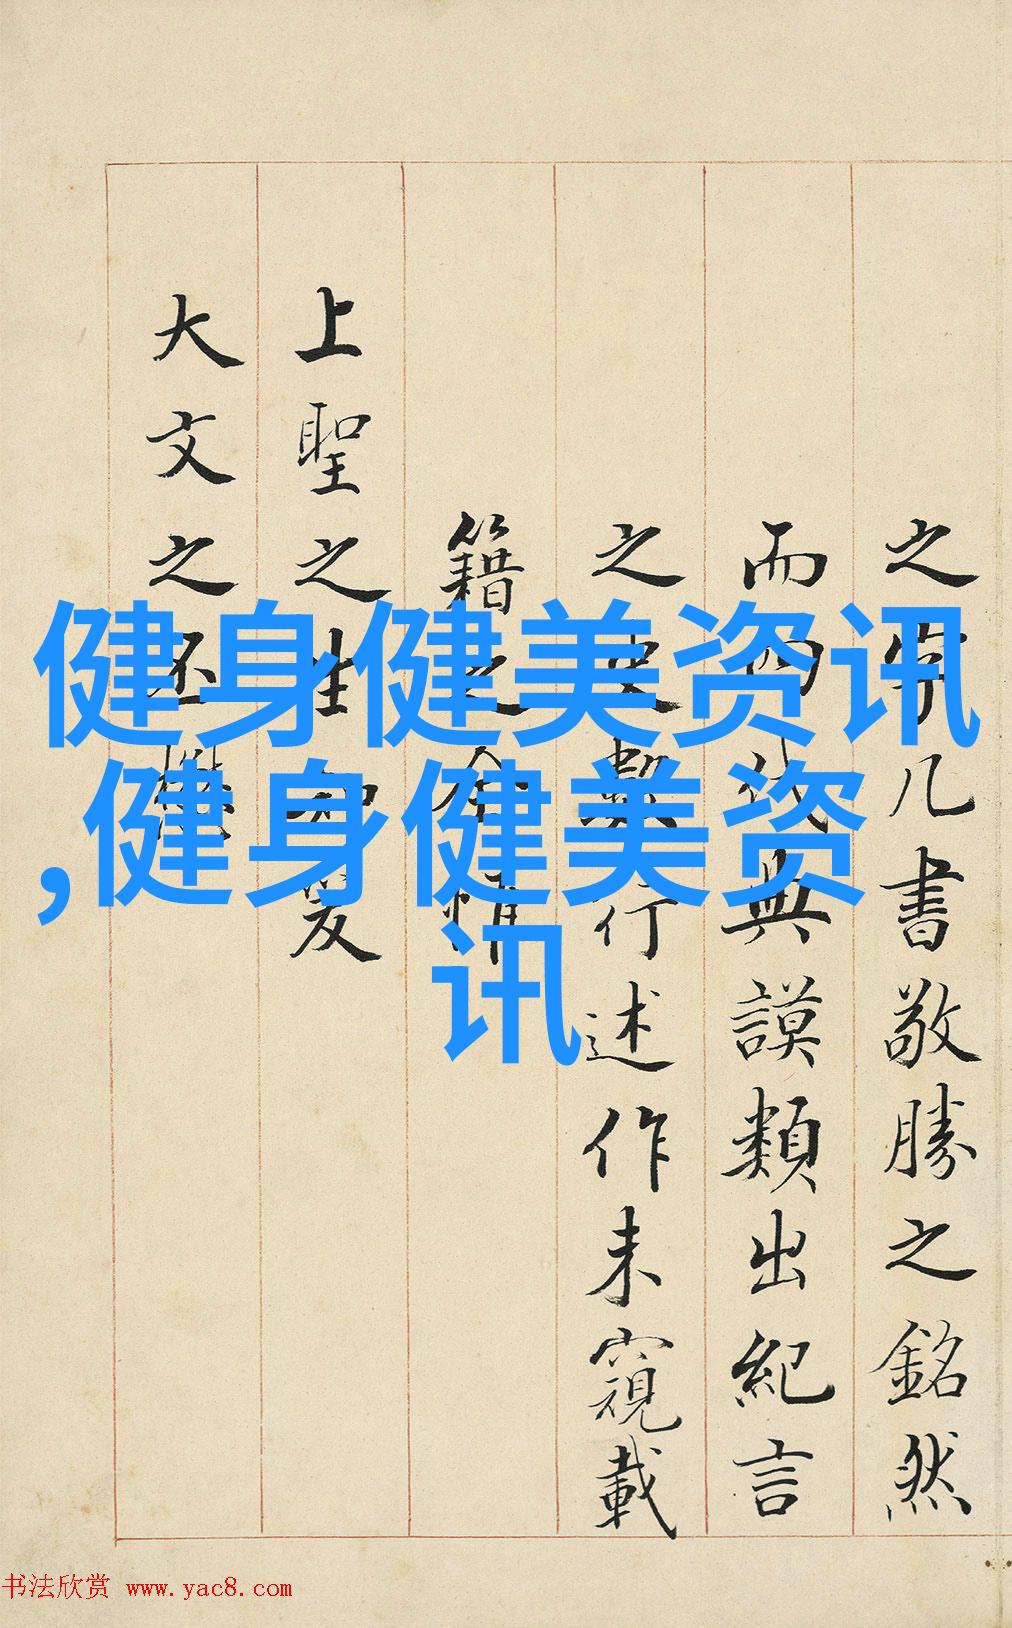 健身健美资讯
,健身健美资
讯
之几書敬勝之銘然
而四代典謨類出紀言
之史行述作未窺載
籍之全
上聖之生知爰
大文之丕
书法欣赏 www.yac8.com